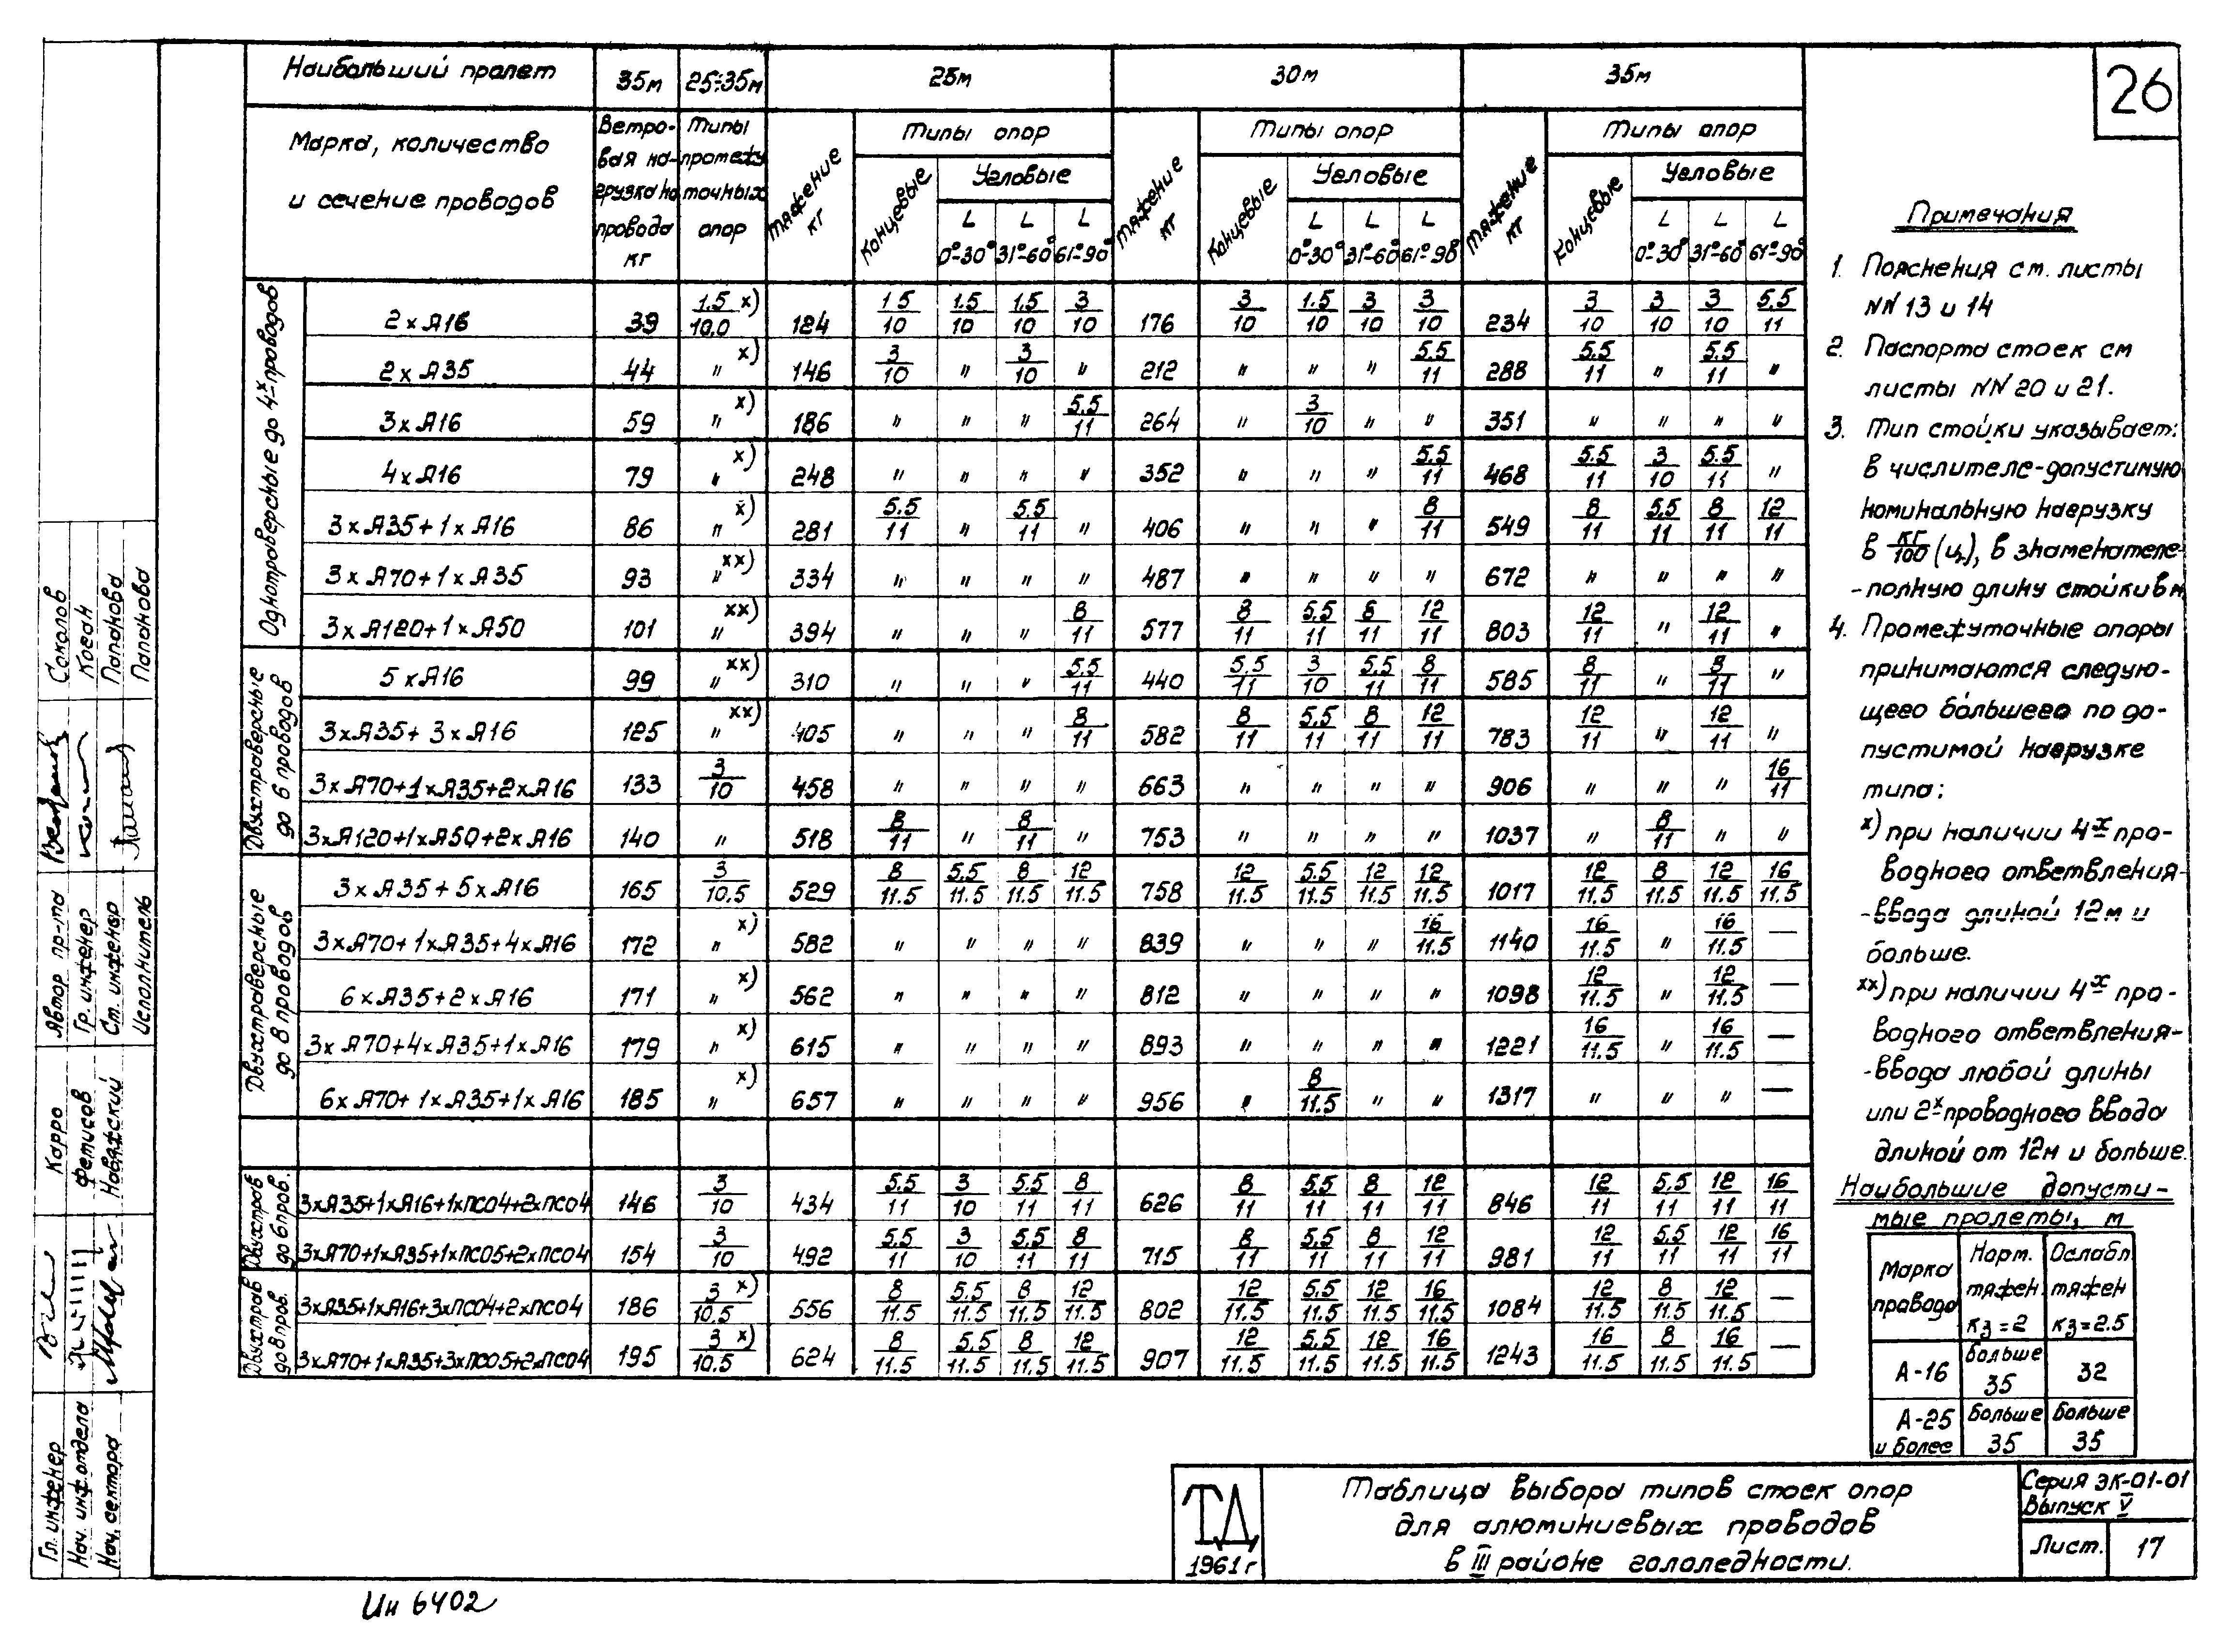 26
Наибольший пролет 35м 25÷35м 25м 30м 35м
Марка, количество и сечение проводов
Ветровая нагрузка на провода кг
Типы промежуточных опор
Тяжение кг Типы опор Тяжение кг Типы опор Тяжение кг Типы опор
Концевые Угловые Концевые Угловые Концевые Угловые
L 0°-30° L 31°-60° L 61°-90° L 0°-30° L 31°-60° L 61°-90° L 0°-30° L 31°-60° L 61°-90°
Однотраверсные до 4х проводов
2хА16 39 1.5/10.0 х) 124 1.5/10 1.5/10 1.5/10 3/10 176 3/10 1.5/10 3/10 3/10 234 3/10 3/10 3/10 5.5/11
2хА35 44 " х) 146 3/10 " 3/10 " 212 " " " 5.5/11 288 5.5/11 " 5.5/11 "
3хА16 59 " х) 186 " " " 5.5/11 264 " 3/10 " " 351 " " " "
4хА16 79 " х) 248 " " " " 352 " " " 5.5/11 468 5.5/11 3/10 5.5/11 "
3хА35+1хА16 86 " х) 281 5.5/11 " 5.5/11 " 406 " " " 8/11 549 8/11 5.5/11 8/11 12/11
3хА70+1хА35 93 " хх) 334 " " " " 487 " " " " 672 " " " "
3хА120+1хА50 101 " хх) 394 " " " 8/11 577 8/11 5.5/11 8/11 12/11 803 12/11 " 12/11 "
Двухтраверсные до 6 проводов
5хА16 99 " хх) 310 " " " 5.5/11 440 5.5/11 3/10 5.5/11 8/11 585 8/11 " 8/11 "
3хА35+3хА16 125 " хх) 405 " " " 8/11 582 8/11 5.5/11 8/11 12/11 783 12/11 " 12/11 "
3хА70+1хА35+2хА16 133 3/10 458 " " " " 663 " " " " 906 " " " 16/11
3хА120+1хА50+2хА16 140 " 518 8/11 " 8/11 " 753 " " " " 1037 " 8/11 " "
Двухтраверсные до 8 проводов
3хА35+5хА16 165 3/10.5 529 8/11.5 5.5/11.5 8/11.5 12/11.5 758 12/11.5 5.5/11.5 12/11.5 12/11.5 1017 12/11.5 8/11.5 12/11.5 16/11.5
3хА70+1хА35+4хА16 172 " х) 582 " " " " 839 " " " 16/11.5 1140 16/11.5 " 16/11.5 —
6хА35+2хА16 171 " х) 562 " " " " 812 " " " " 1098 12/11.5 " 12/11.5 —
3хА70+4хА35+1хА16 179 " х) 615 " " " " 893 " " " " 1221 16/11.5 " 16/11.5 —
6хА70+1хА35+1хА16 185 " х) 657 " " " " 956 " 8/11.5 " " 1317 " " " —
Двухтрав до 6 пров.
3хА35+1хА16+1хПСО4+2хПСО4 146 3/10 434 5.5/11 3/10 5.5/11 8/11 626 8/11 5.5/11 8/11 12/11 846 12/11 5.5/11 12/11 16/11
3хА70+1хА35+1хПСО5+2хПСО4 154 3/10 492 5.5/11 3/10 5.5/11 8/11 715 8/11 5.5/11 8/11 12/11 981 12/11 5.5/11 12/11 16/11
Двухтрав до 8 пров.
3хА35+1хА16+3хПСО4+2хПСО4 186 3/10.5 х) 556 8/11.5 5.5/11.5 8/11.5 12/11.5 802 12/11.5 5.5/11.5 12/11.5 16/11.5 1084 12/11.5 8/11.5 12/11.5 —
3хА70+1хА35+3хПСО5+2хПСО4 195 3/10.5 х) 624 8/11.5 5.5/11.5 8/11.5 12/11.5 907 12/11.5 5.5/11.5 12/11.5 16/11.5 1243 16/11.5 8/11.5 16/11.5 —
Примечания
1. Пояснения см. листы
NN 13 и 14
2. Паспорта стоек см
листы NN 20 и 21.
3. Тип стойки указывает:
в числителе-допустимую
номинальную нагрузку
в кг/100 (ц), в знаменателе-
-полную длину стойки в м
4. Промежуточные опоры
принимаются следую-
щего большего по до-
пустимой нагрузке
типа:
х) при наличии 4х про-
водного ответвления-
-ввода длиной 12м и
больше.
хх) при наличии 4х про-
водного ответвления-
-ввода любой длины
или 2х проводного ввода
длиной от 12м и больше.
Наибольшие допусти-
мые пролеты, м
Марка провода Норм. тяжен кз=2 Ослабл. тяжен кз=2.5
А-16 больше 35 32
А-25 и более больше 35 больше 35
ТД
1961г
Таблица выбора типов стоек опор
для алюминиевых проводов
в III районе гололедности.
Серия ЭК-01-01
Выпуск V
Лист. 17
Соколов
Коган
Папанова
Папанова
Автор пр-та
Гр. инженер
Ст. инженер
Исполнитель
Карро
Фетисов
Новажский
Гл. инженер
Нач. инж. отдела
Нач. сектора
Ин 6402